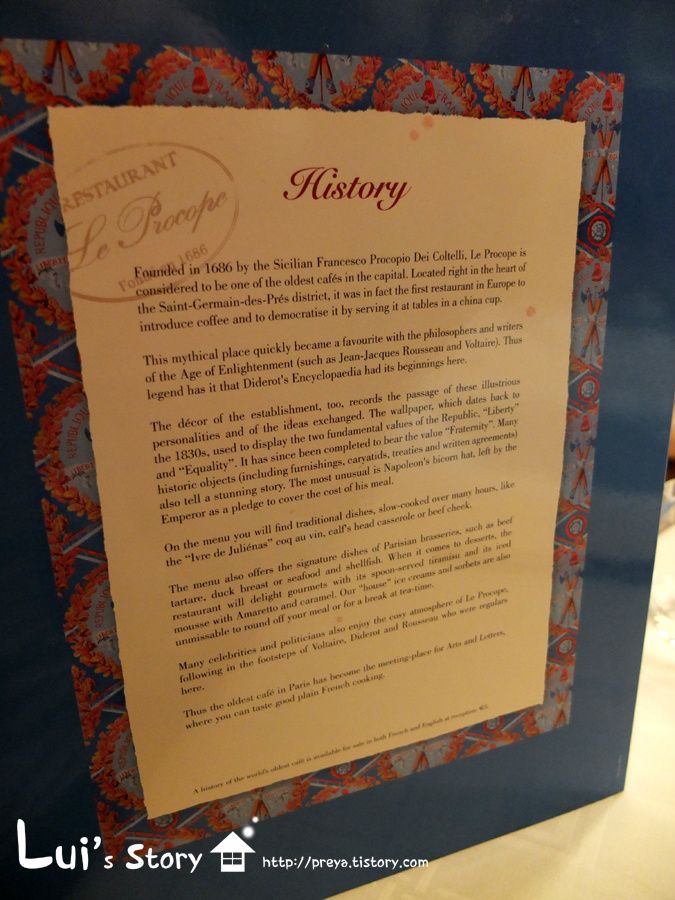 RESTAURANT
Le Procope
Fondé en 1686
History
Founded in 1686 by the Sicilian Francesco Procopio Dei Coltelli, Le Procope is
considered to be one of the oldest cafés in the capital. Located right in the heart of
the Saint-Germain-des-Prés district, it was in fact the first restaurant in Europe to
introduce coffee and to democratise it by serving it at tables in a china cup.
This mythical place quickly became a favourite with the philosophers and writers
of the Age of Enlightenment (such as Jean-Jacques Rousseau and Voltaire). Thus
legend has it that Diderot's Encyclopaedia had its beginnings here.
The décor of the establishment, too, records the passage of these illustrious
personalities and of the ideas exchanged. The wallpaper, which dates back to
the 1830s, used to display the two fundamental values of the Republic, “Liberty”
and “Equality”. It has since been completed to bear the value “Fraternity”. Many
historic objects (including furnishings, caryatids, treaties and written agreements)
also tell a stunning story. The most unusual is Napoleon's bicorn hat, left by the
Emperor as a pledge to cover the cost of his meal.
On the menu you will find traditional dishes, slow-cooked over many hours, like
the “Ivre de Juliénas” coq au vin, calf's head casserole or beef cheek.
The menu also offers the signature dishes of Parisian brasseries, such as beef
tartare, duck breast or seafood and shellfish. When it comes to desserts, the
restaurant will delight gourmets with its spoon-served tiramisu and its iced
mousse with Amaretto and caramel. Our “house” ice creams and sorbets are also
unmissable to round off your meal or for a break at tea-time.
Many celebrities and politicians also enjoy the cosy atmosphere of Le Procope,
following in the footsteps of Voltaire, Diderot and Rousseau who were regulars
here.
Thus the oldest café in Paris has become the meeting-place for Arts and Letters,
where you can taste good plain French cooking.
A history of the world's oldest café is available for sale in both French and English at reception: €5.
Lui's Story http://preya.tistory.com